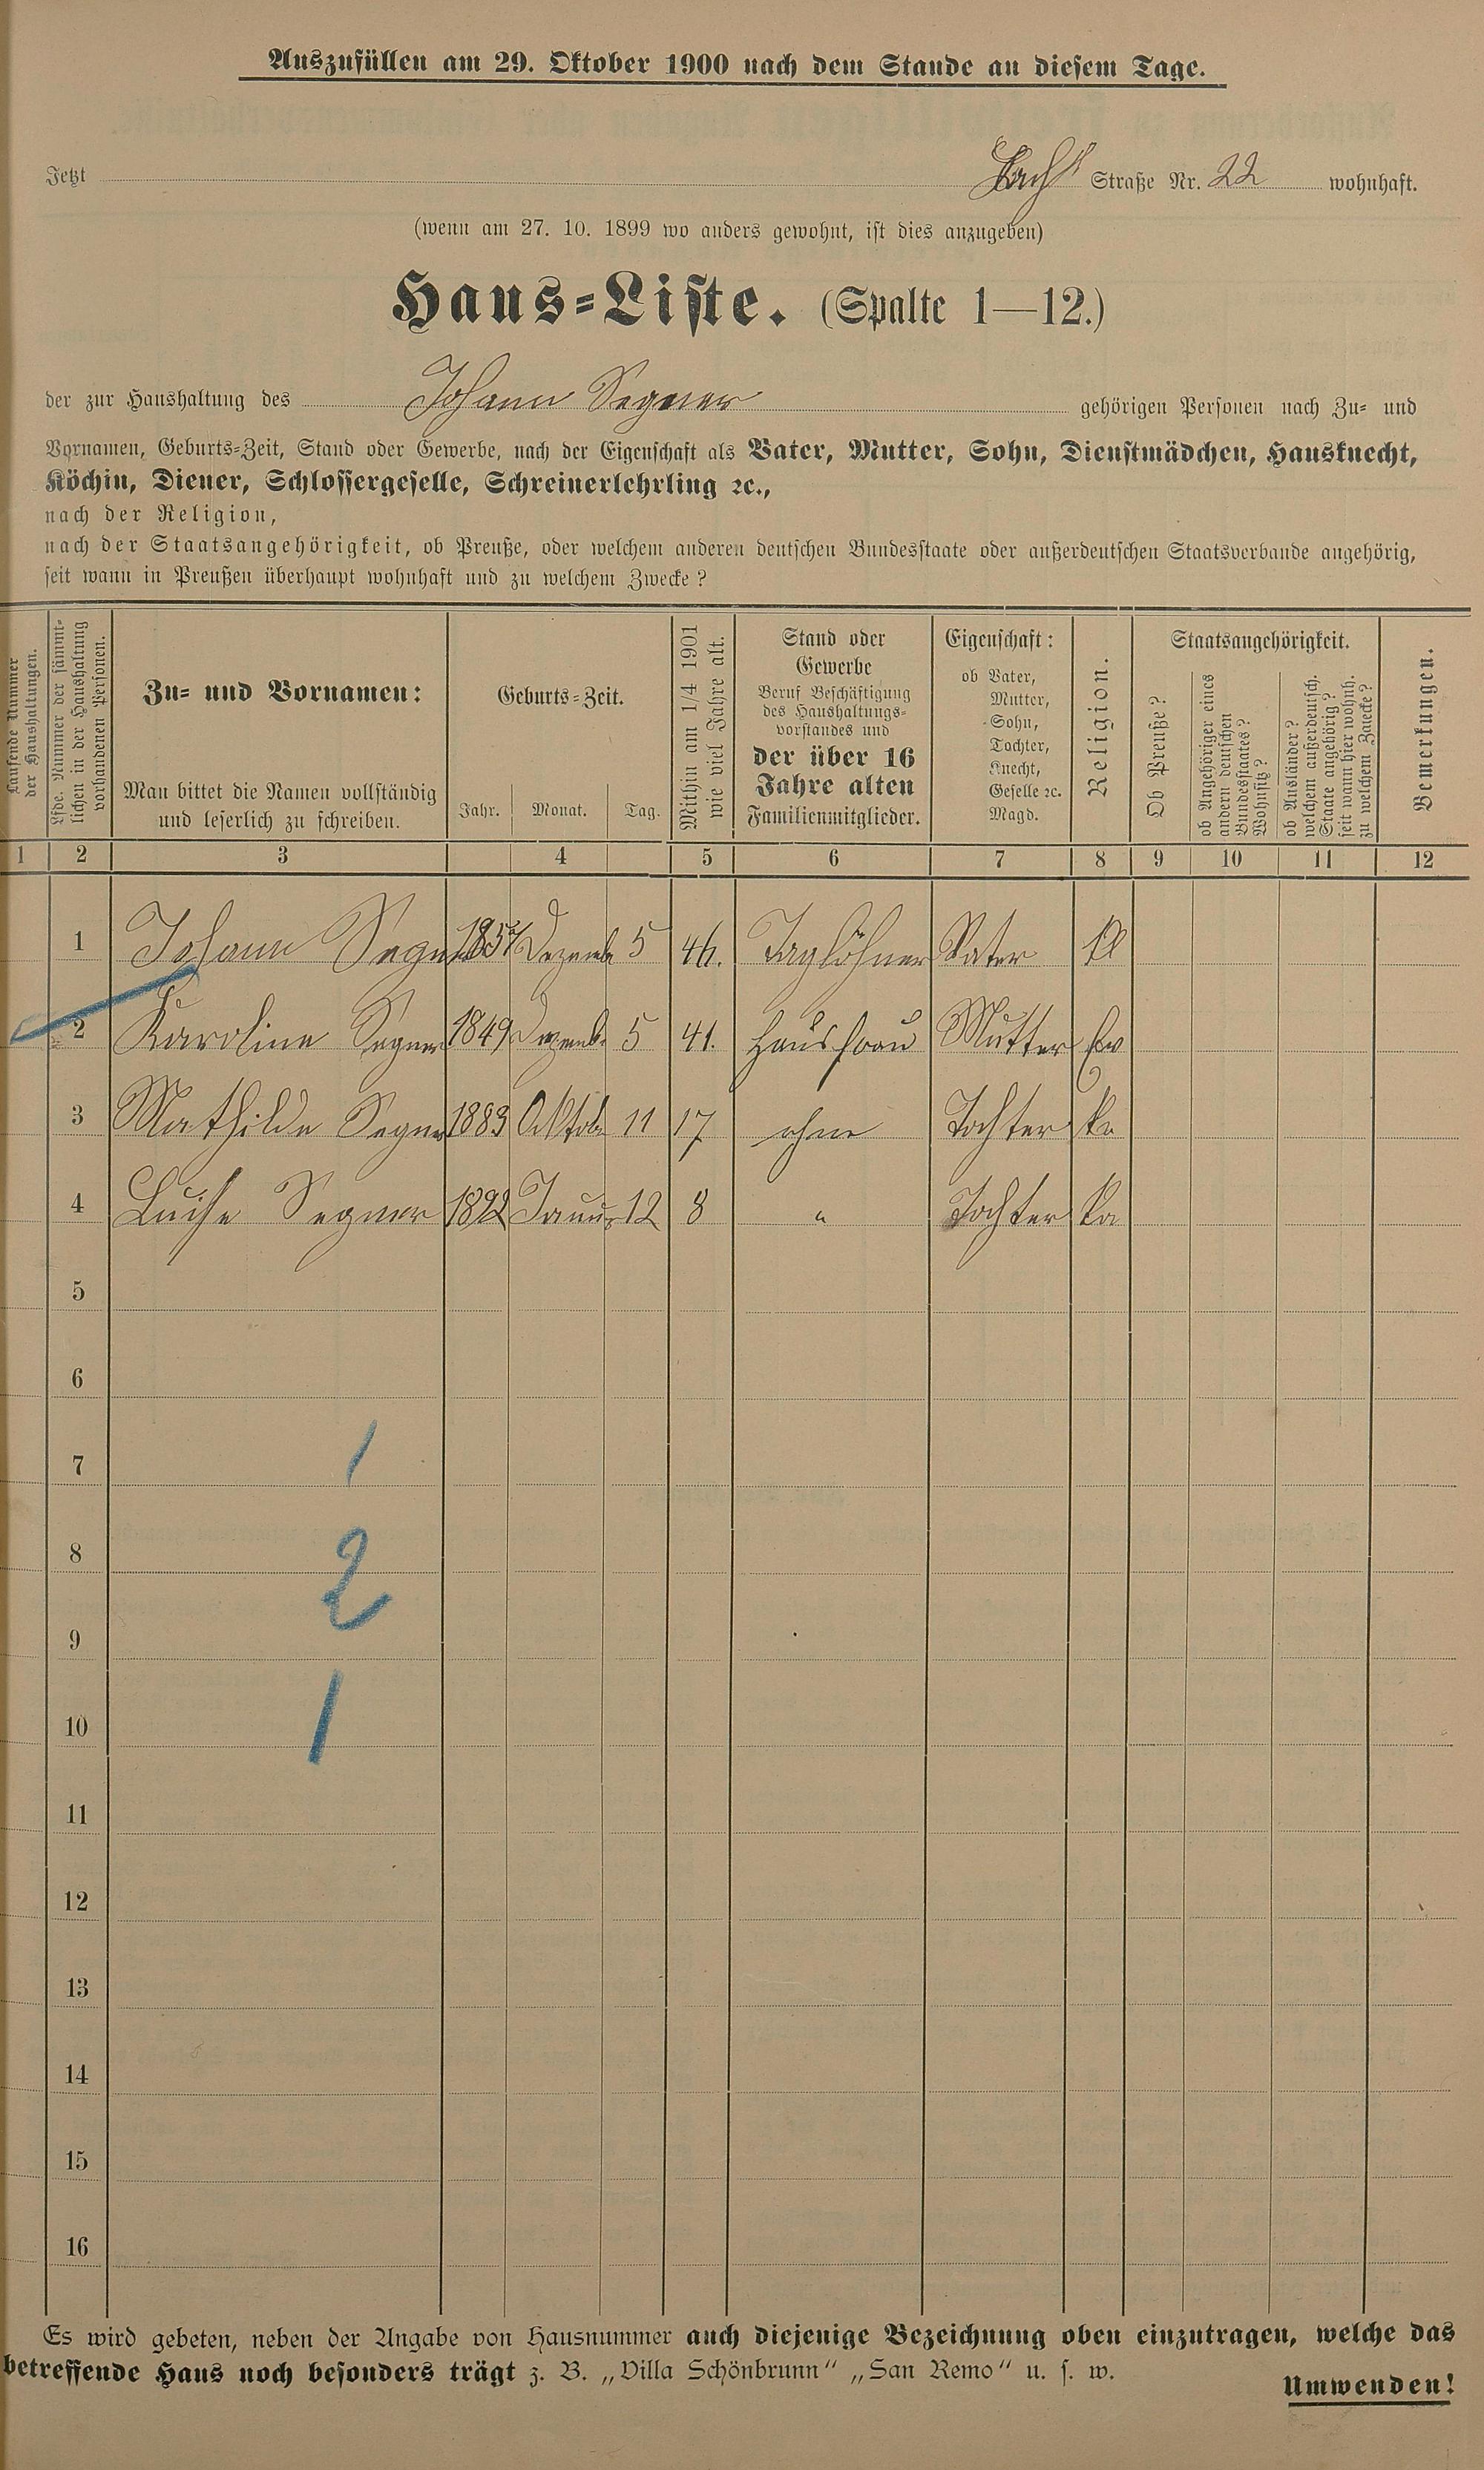 Auszufüllen am 29. Oktober 1900 nach dem Stande an diesem Tage.
Jetzt Straße Nr. 22 wohnhaft.
(wenn am 27. 10. 1899 wo anders gewohnt, ist dies anzugeben)
Haus-Liste. (Spalte 1—12.)
der zur Haushaltung des Johann Segner gehörigen Personen nach Zu- und
Vornamen, Geburts-Zeit, Stand oder Gewerbe, nach der Eigenschaft als Vater, Mutter, Sohn, Dienstmädchen, Hausknecht,
Köchin, Diener, Schlossergeselle, Schreinerlehrling ꝛc.,
nach der Religion,
nach der Staatsangehörigkeit, ob Preuße, oder welchem anderen deutschen Bundesstaate oder außerdeutschen Staatsverbande angehörig,
seit wann in Preußen überhaupt wohnhaft und zu welchem Zwecke?
Laufende Nummer
der Haushaltungen.
Lfde. Nummer der sämmt-
lichen in der Haushaltung
vorhandenen Personen.
Zu- und Vornamen:
Man bittet die Namen vollständig
und leserlich zu schreiben.
Geburts-Zeit.
Jahr. Monat. Tag.
Mithin am 1/4 1901
wie viel Jahre alt.
Stand oder
Gewerbe
Beruf Beschäftigung
des Haushaltungs-
vorstandes und
der über 16
Jahre alten
Familienmitglieder.
Eigenschaft:
ob Vater,
Mutter,
Sohn,
Tochter,
Knecht,
Geselle ꝛc.
Magd.
Religion.
Staatsangehörigkeit.
Ob Preuße?
ob Angehöriger eines
andern deutschen
Bundesstaates?
Wohnsitz?
ob Ausländer?
welchem außerdeutsch.
Staate angehörig?
seit wann hier wohnh.
zu welchem Zwecke?
Bemerkungen.
1 2 3 4 5 6 7 8 9 10 11 12
1 Johann Segner Dezemb 5 46. Taglöhner Vater
2 Karoline Segner 1849 Dezemb 5 41. Hausfrau Mutter Ev
3 Mathilde Segner 1883 Oktob 11 17 ohne Tochter Ka
4 Luise Segner 1892 Januar 12 8 " Tochter Ka
5
6
7
1
8
2
9
10
1
11
12
13
14
15
16
Es wird gebeten, neben der Angabe von Hausnummer auch diejenige Bezeichnung oben einzutragen, welche das
betreffende Haus noch besonders trägt z. B. „Villa Schönbrunn" „San Remo" u. s. w.
Umwenden!